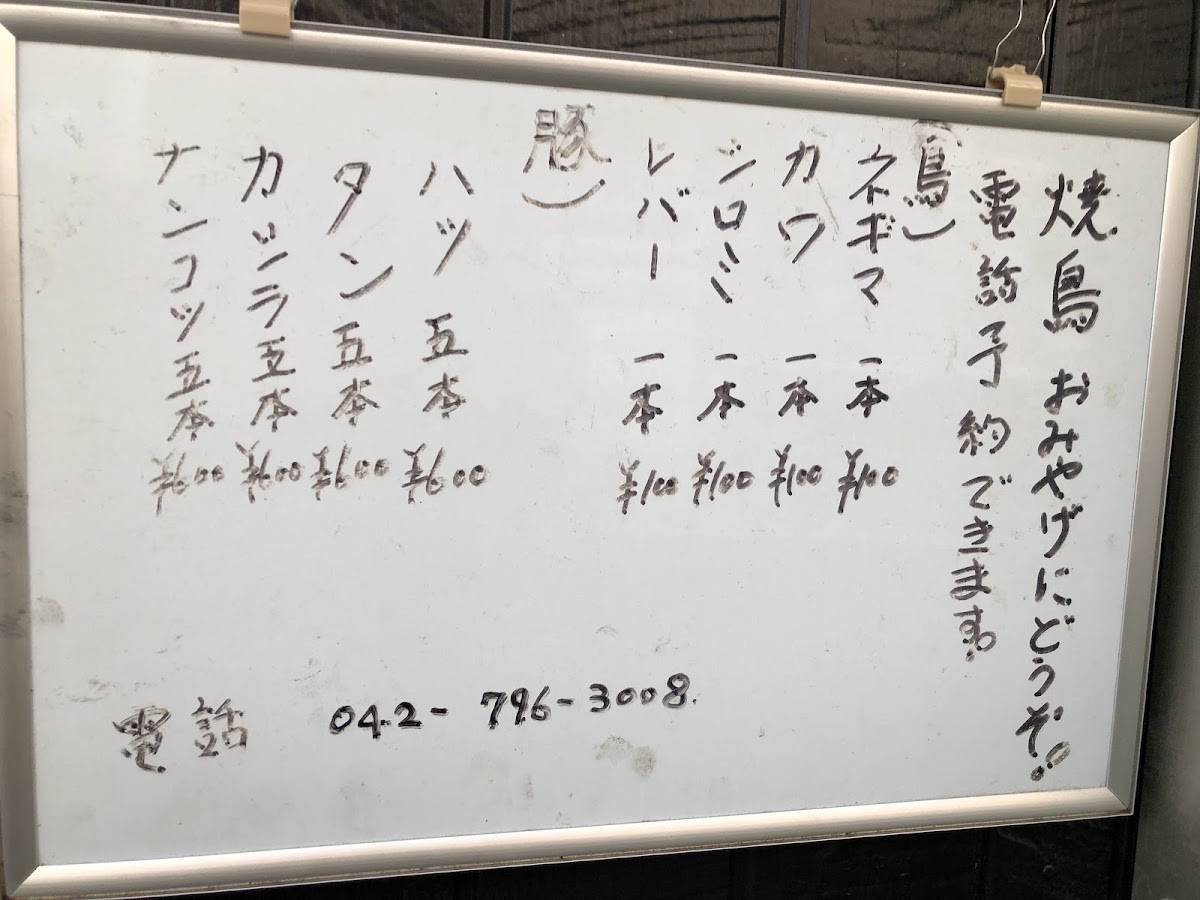 焼鳥 おみやげにどうぞ!!
電話予約できます!!
(鳥)
ネギマ 一本 ¥100
カワ 一本 ¥100
シロミ 一本 ¥100
レバー 一本 ¥100
豚)
ハツ 五本 ¥600
タン 五本 ¥600
カシラ 五本 ¥600
ナンコツ 五本 ¥600
電話 042-796-3008.